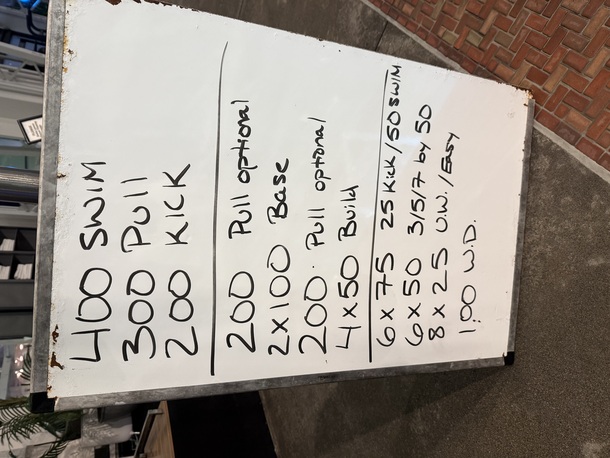 400 SWIM
300 Pull
200 KICK
200 Pull optional
2x100 Base
200 Pull optional
4x50 Build
6x75 25 Kick/50 SWIM
6x50 3/5/7 by 50
8x25 U.W./Easy
100 W.D.